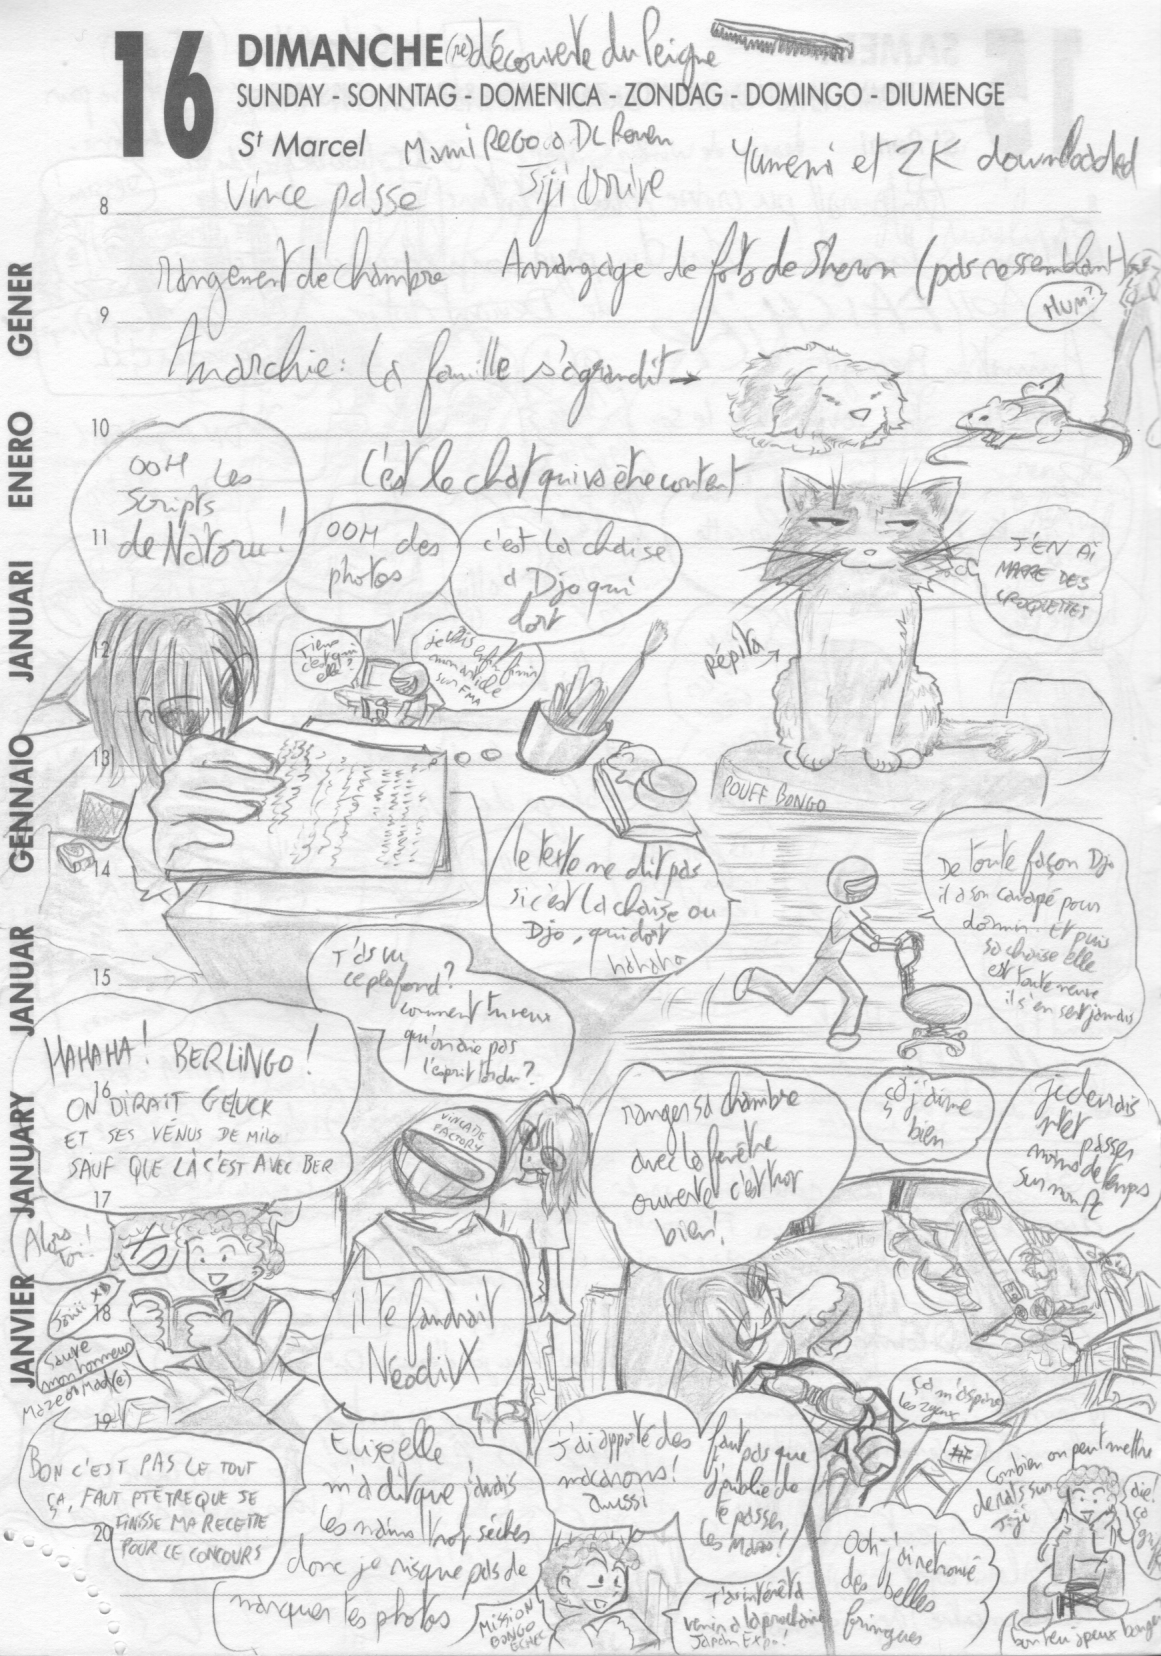 16
DIMANCHE (re)découverte du Peigne
SUNDAY - SONNTAG - DOMENICA - ZONDAG - DOMINGO - DIUMENGE
St Marcel
Yumemi et 2K downloaded
Vince passe
Jiji arrive
8
rangement de chambre
(pas ressemblant)
HUM?
9
Anarchie: La famille s'agrandit →
10
c'est le chat qui va être content
OOH Les
scripts
de Natoru!
11
OOH des
photos
c'est la chaise
à Djo qui
dort
J'EN AI
MARRE DES
CROQUETTES
12
Tiens
c'est qui
elle?
je vais enfin finir
mon article
sur FMA
pépita
13
POUFF BONGO
14
le texte ne dit pas
si c'est la chaise ou
Djo, qui dort
hahaha
De toute façon Djo
il a son canapé pour
dormir. Et puis
sa chaise elle
est toute neuve
il s'en sert jamais
15
T'as vu
ce plafond?
comment tu veux
qu'on aie pas
l'esprit tordu?
HAHAHA! BERLINGO!
16
ON DIRAIT GELUCK
ET SES VENUS DE MILO
SAUF QUE LÀ C'EST AVEC BER
VINCATIE
FACTORY
ranger sa chambre
avec la fenêtre
ouverte c'est trop
bien!
ça j'aime
bien
je devrais
ptet
passer
moins de temps
sur mon PC
17
Alors
toi!
18
Sauve
mon honneur
il te faudrait
NéodivX
19
ça m'aspire
les zyeux
BON C'EST PAS LE TOUT
ÇA, FAUT PTÊTRE QUE JE
FINISSE MA RECETTE
POUR LE CONCOURS
20
Elise elle
m'a dit que j'avais
les mains trop sèches
donc je risque pas de
marquer tes photos
J'ai apporté des
macarons!
aussi
faut pas que
j'oublie de
te passer
les Mazo!
MISSION
BONGO
ECHEC
T'as intérêt à
venir à la prochaine
Japan Expo!
Ooh j'ai retrouvé
des belles
fringues
Combien on peut mettre
de rats sur
Jiji
aïe!
ça
JANVIER JANUARY JANUAR GENNAIO JANUARI ENERO GENER